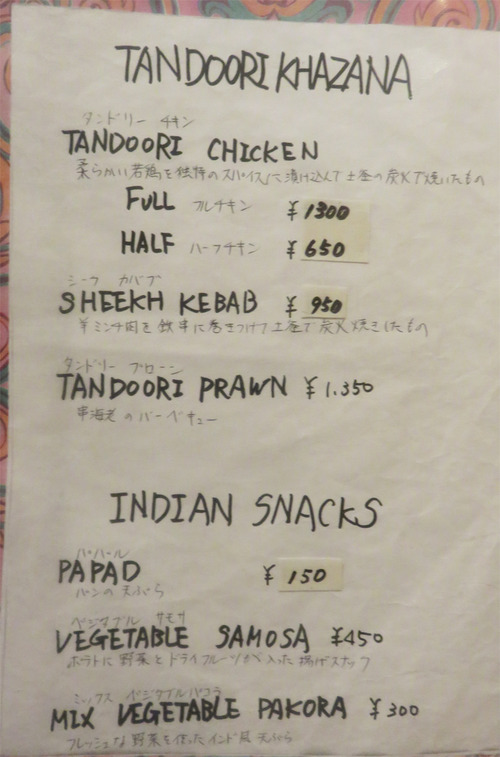 TANDOORI KHAZANA
タンドリー チキン
TANDOORI CHICKEN
柔らかい若鶏を独特のスパイスに漬け込んで土釜の炭火で焼いたもの
FULL フルチキン ¥1300
HALF ハーフチキン ¥650
シーク カバブ
SHEEKH KEBAB ¥950
ミンチ肉を鉄串に巻きつけて土釜で炭火焼きしたもの
タンドリー プローン
TANDOORI PRAWN ¥1.350
車海老のバーベキュー
INDIAN SNACKS
パパール
PAPAD ¥150
パンの天ぷら
ベジタブル サモサ
VEGETABLE SAMOSA ¥450
ポテトに野菜とドライフルーツが入った揚げスナック
ミックス ベジタブルパコラ
MIX VEGETABLE PAKORA ¥300
フレッシュな野菜を使ったインド風天ぷら